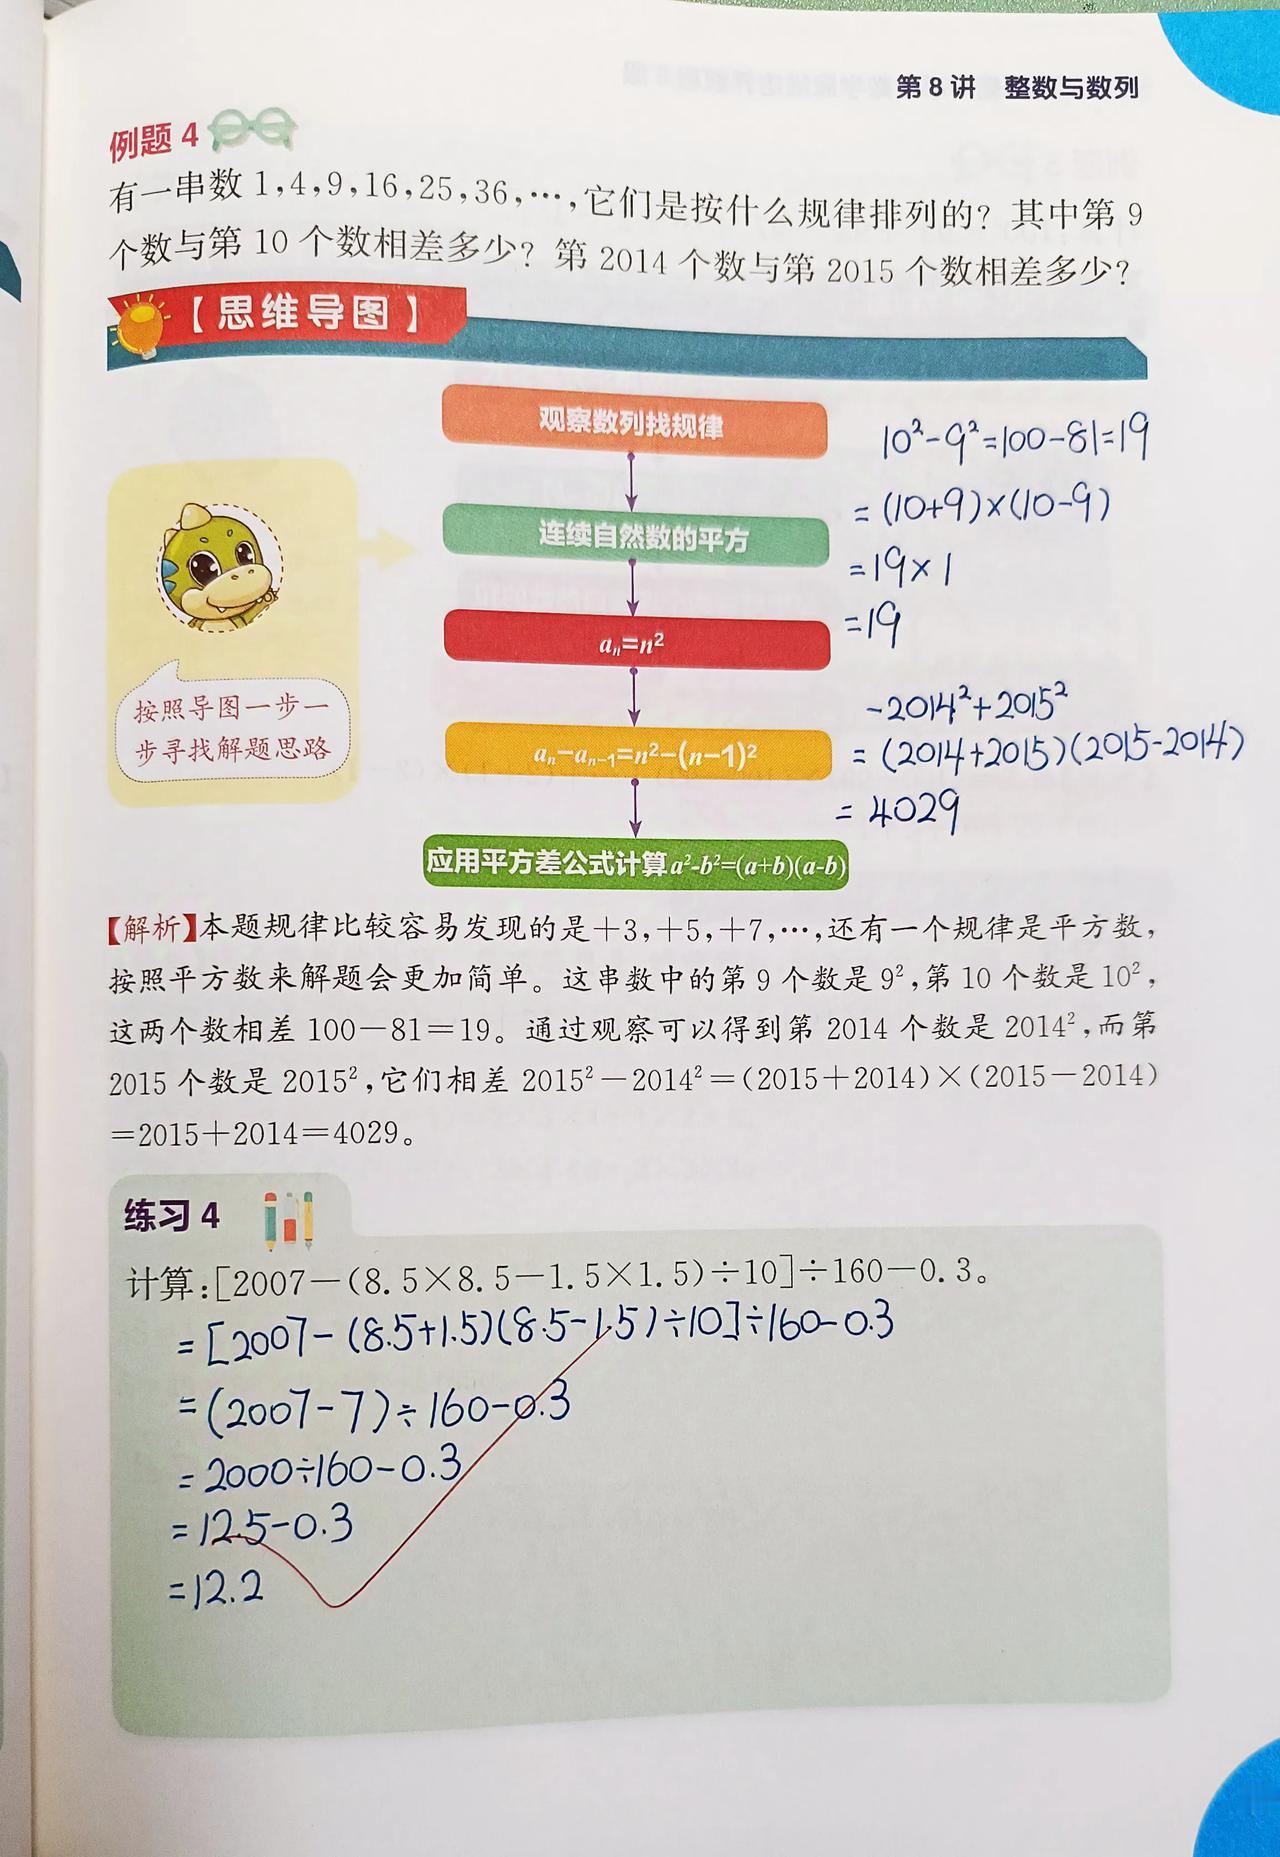 第 8 讲 整数与数列
例题 4
有一串数 1,4,9,16,25,36,…,它们是按什么规律排列的？其中第 9
个数与第 10 个数相差多少？第 2014 个数与第 2015 个数相差多少？
【思维导图】
观察数列找规律
连续自然数的平方
aₙ=n²
aₙ-aₙ₋₁=n²-(n-1)²
应用平方差公式计算a²-b²=(a+b)(a-b)
按照导图一步一
步寻找解题思路
10²-9²=100-81=19
=(10+9)×(10-9)
=19×1
=19
-2014²+2015²
=(2014+2015)(2015-2014)
=4029
【解析】本题规律比较容易发现的是+3,+5,+7,…,还有一个规律是平方数,
按照平方数来解题会更加简单。这串数中的第 9 个数是 9²,第 10 个数是 10²,
这两个数相差 100-81=19。通过观察可以得到第 2014 个数是 2014²,而第
2015 个数是 2015²,它们相差 2015²-2014²=(2015+2014)×(2015-2014)
=2015+2014=4029。
练习 4
计算:[2007-(8.5×8.5-1.5×1.5)÷10]÷160-0.3。
=[2007-(8.5+1.5)(8.5-1.5)÷10]÷160-0.3
=(2007-7)÷160-0.3
=2000÷160-0.3
=12.5-0.3
=12.2